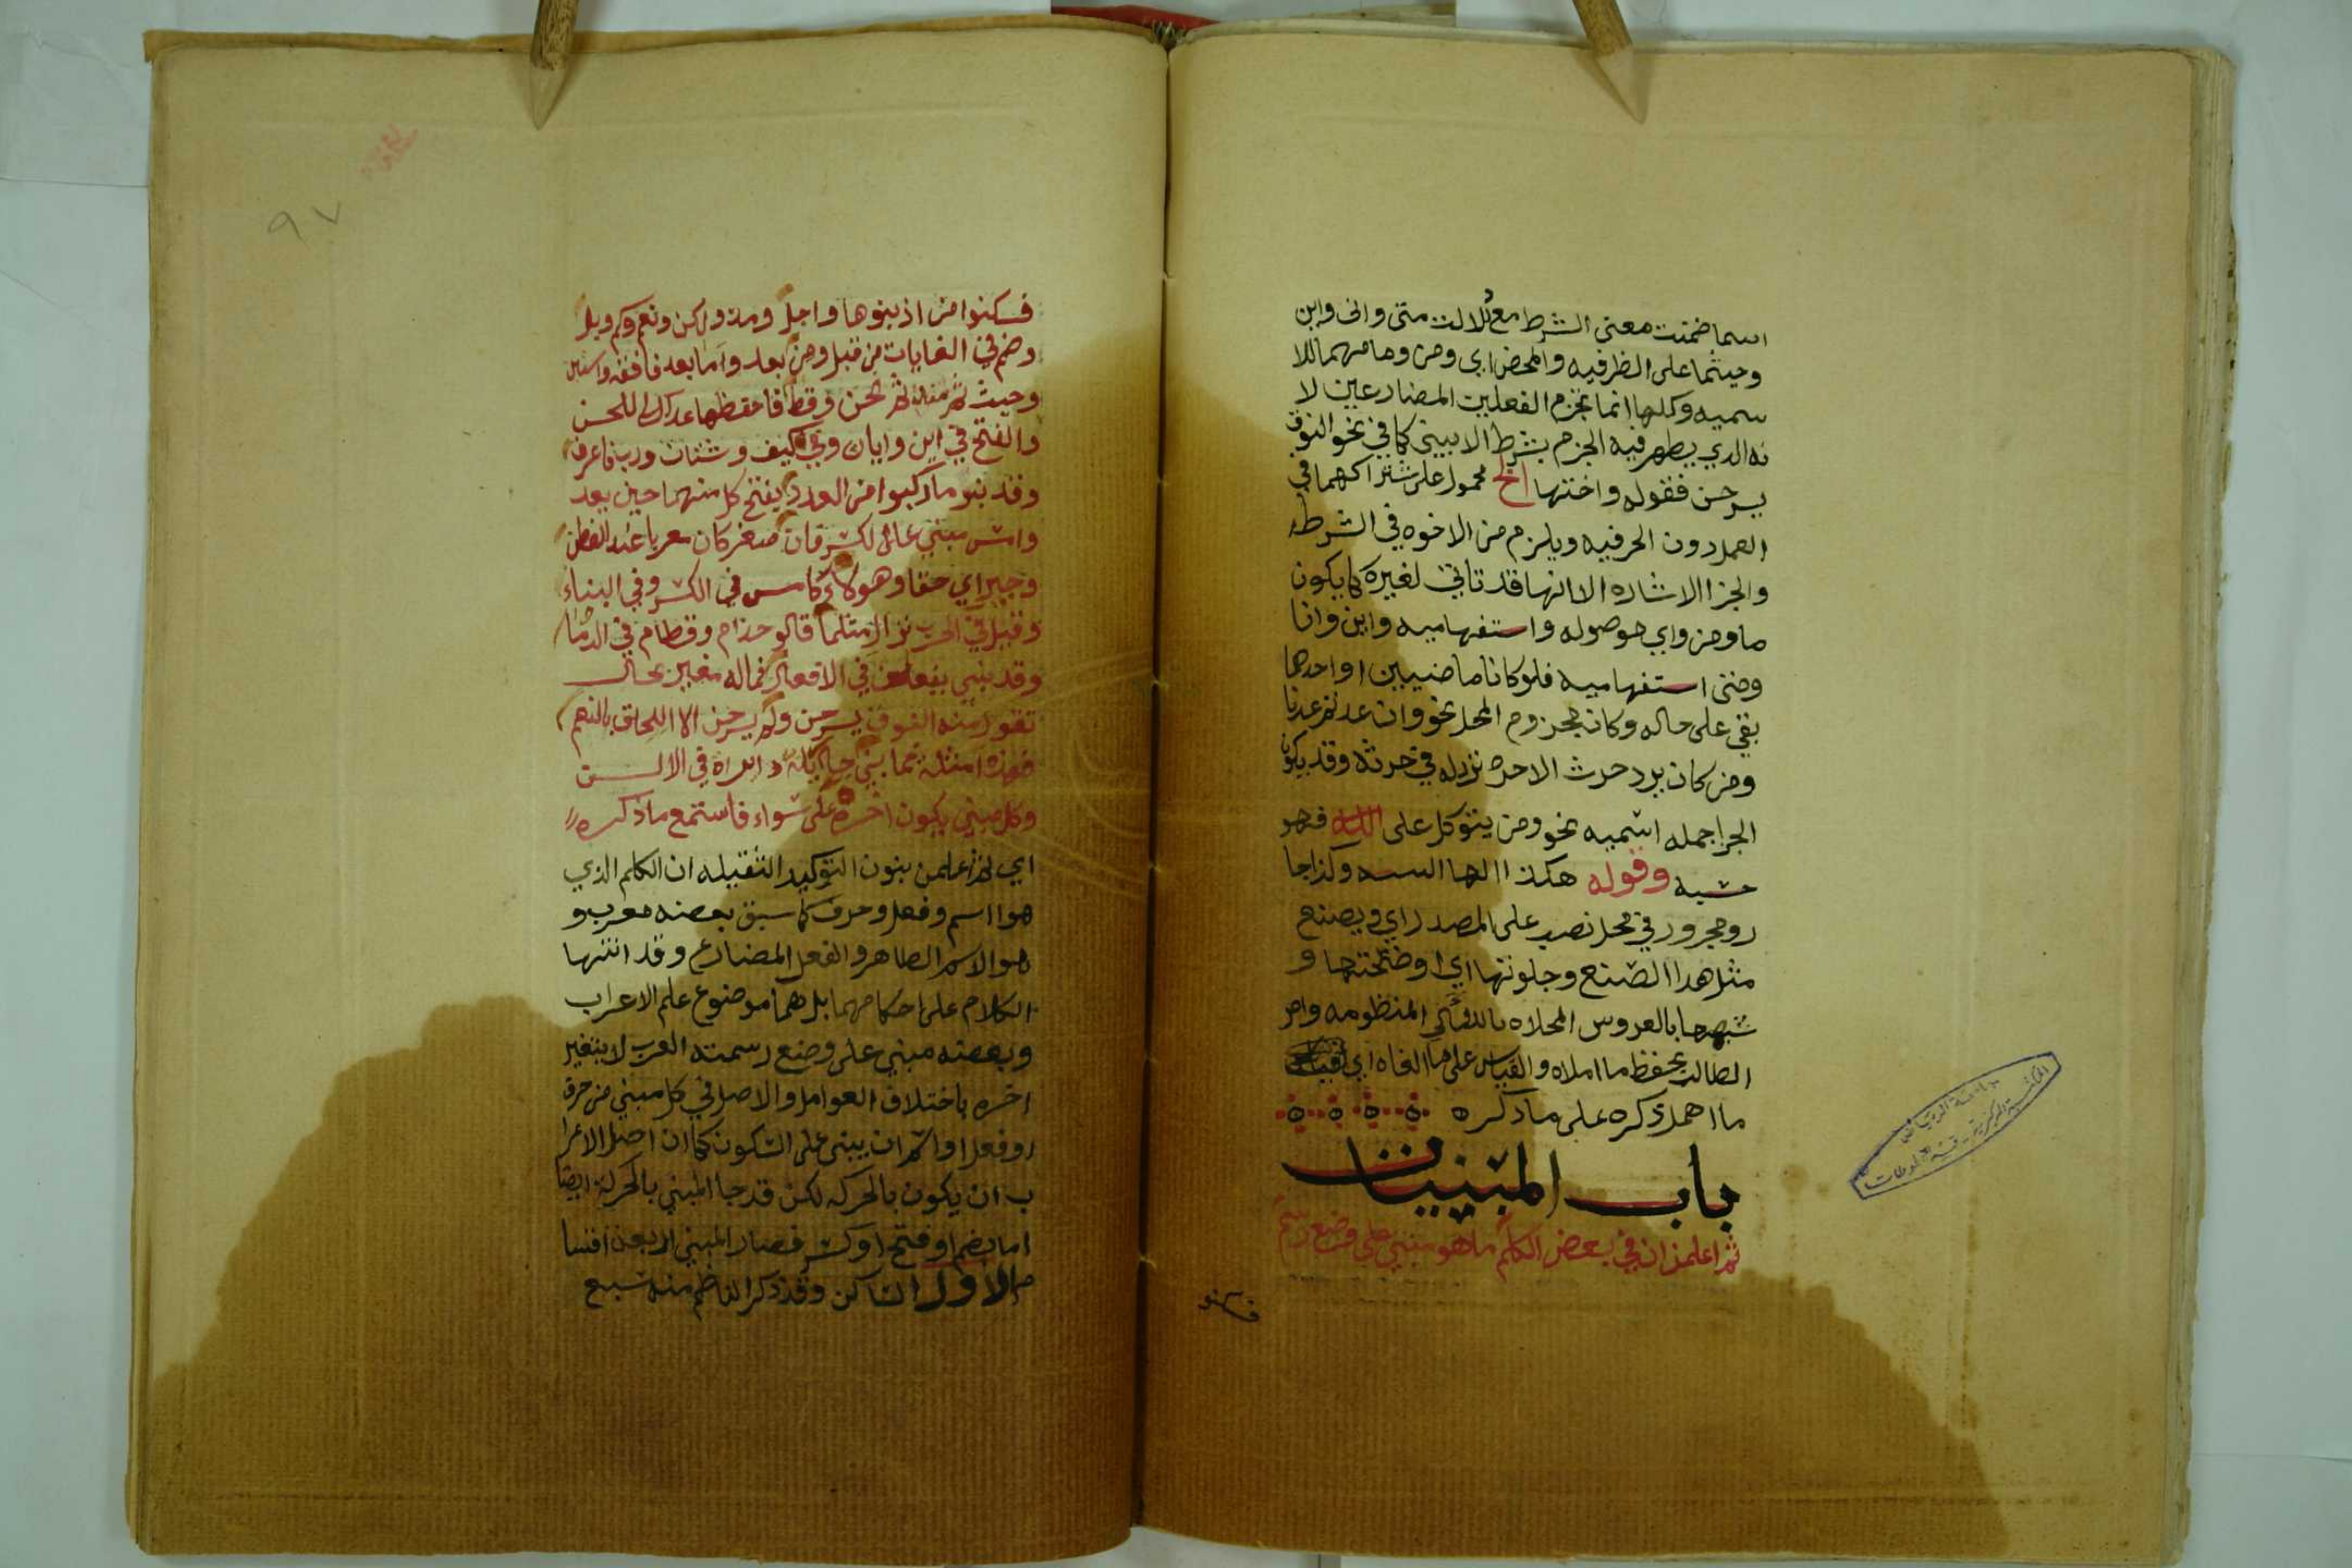 اسما ضمنت معنى الشرط مع دلالت متى وانى واين
وحيثما على الظرفيه والمحض اي ومن وما مهما للا
سميه وكلها انما تجزم الفعلين المضارعين لا
نه الدي يظهر فيه الجزم بشرط الا يبنى كما في نحو النوق
يسرحن فقوله واختها الخ محمول على شتراكهما في
العمل دون الحرفيه ويلزم من الاخوه في الشرطه
والجزا الاشاره الا انها قد تاتي لغيره كما يكون
ما ومن واي موصوله واستفهاميه واين وانا
ومتى استفهاميه فلو كانا ماضيين او احدهما
بقي على حاله وكان مجزوم المحل نحو وان عدتم عدنا
ومن كان يريد حرث الاخره نزد له في حرثه وقد يكون
الجزا جمله اسميه نحو ومن يتوكل على الله فهو
حسبه وقوله هكذا الها السنه وكذا جا
رومجرور في محل نصب على المصدر اي ويصنع
مثل هدا الصنع وجلوتها اي اوضحتها و
شبهها بالعروس المحلاه باللئالي المنظومه وامر
الطالب بحفظ ما املاه والقياس على ما الفاه اي
ما اهمل ذكره على ما ذكره
باب المبنيات
ثم اعلمن ان في بعض الكلم ما هو مبني على وضع رسم
فسكنو
٩٧
فسكنوا من اذ بنوها واجل ومذ ولكن ونعم وكم وبل
وضم في الغايات من قبل ومن بعد واما بعد فافقه واستبن
وحيث ثم منذ ثم نحن وقط فاحفظها عداك اللحن
والفتح في اين وايان وفي كيف وشتان ورب فاعرف
وقد بنو ما ركبوا من العدد بفتح كل منهما حين يعد
وامس مبني على الكسر فان صغر كان معربا عند الفطن
وجير اي حقا وهولاء كامس في الكسر وفي البناء
وقيل في الحرب نزال مثلما قالو حذام وقطام في الدما
وقد بني يفعلن في الافعال فما له مغير بحال
تقول منه النوق يسرحن ولم يرحن الا اللحاق بالنعم
فهذه امثلة مما بني جايلة دايراة في الالسن
وكل مبني يكون اخره على سواء فاستمع ما ذكره
اي ثم اعلمن بنون التوكيد الثقيله ان الكلم الذي
هو اسم وفعل وحرف كما سبق بعضه معرب و
هو الاسم الظاهر والفعل المضارع وقد انتها
الكلام على احكامهما بل هما موضوع علم الاعراب
وبعضه مبني على وضع رسمته العرب لا يتغير
اخره باختلاف العوامل والاصل في كل مبني من حرف
او فعل او اسم ان يبنى على السكون كما ان اصل الاعرا
ب ان يكون بالحركه لكن قد جا المبني بالحركة ايضا
اما بضم او فتح او كسر فصار المبني اربعة اقسا
م الاول الساكن وقد ذكر الناظم منه سبع